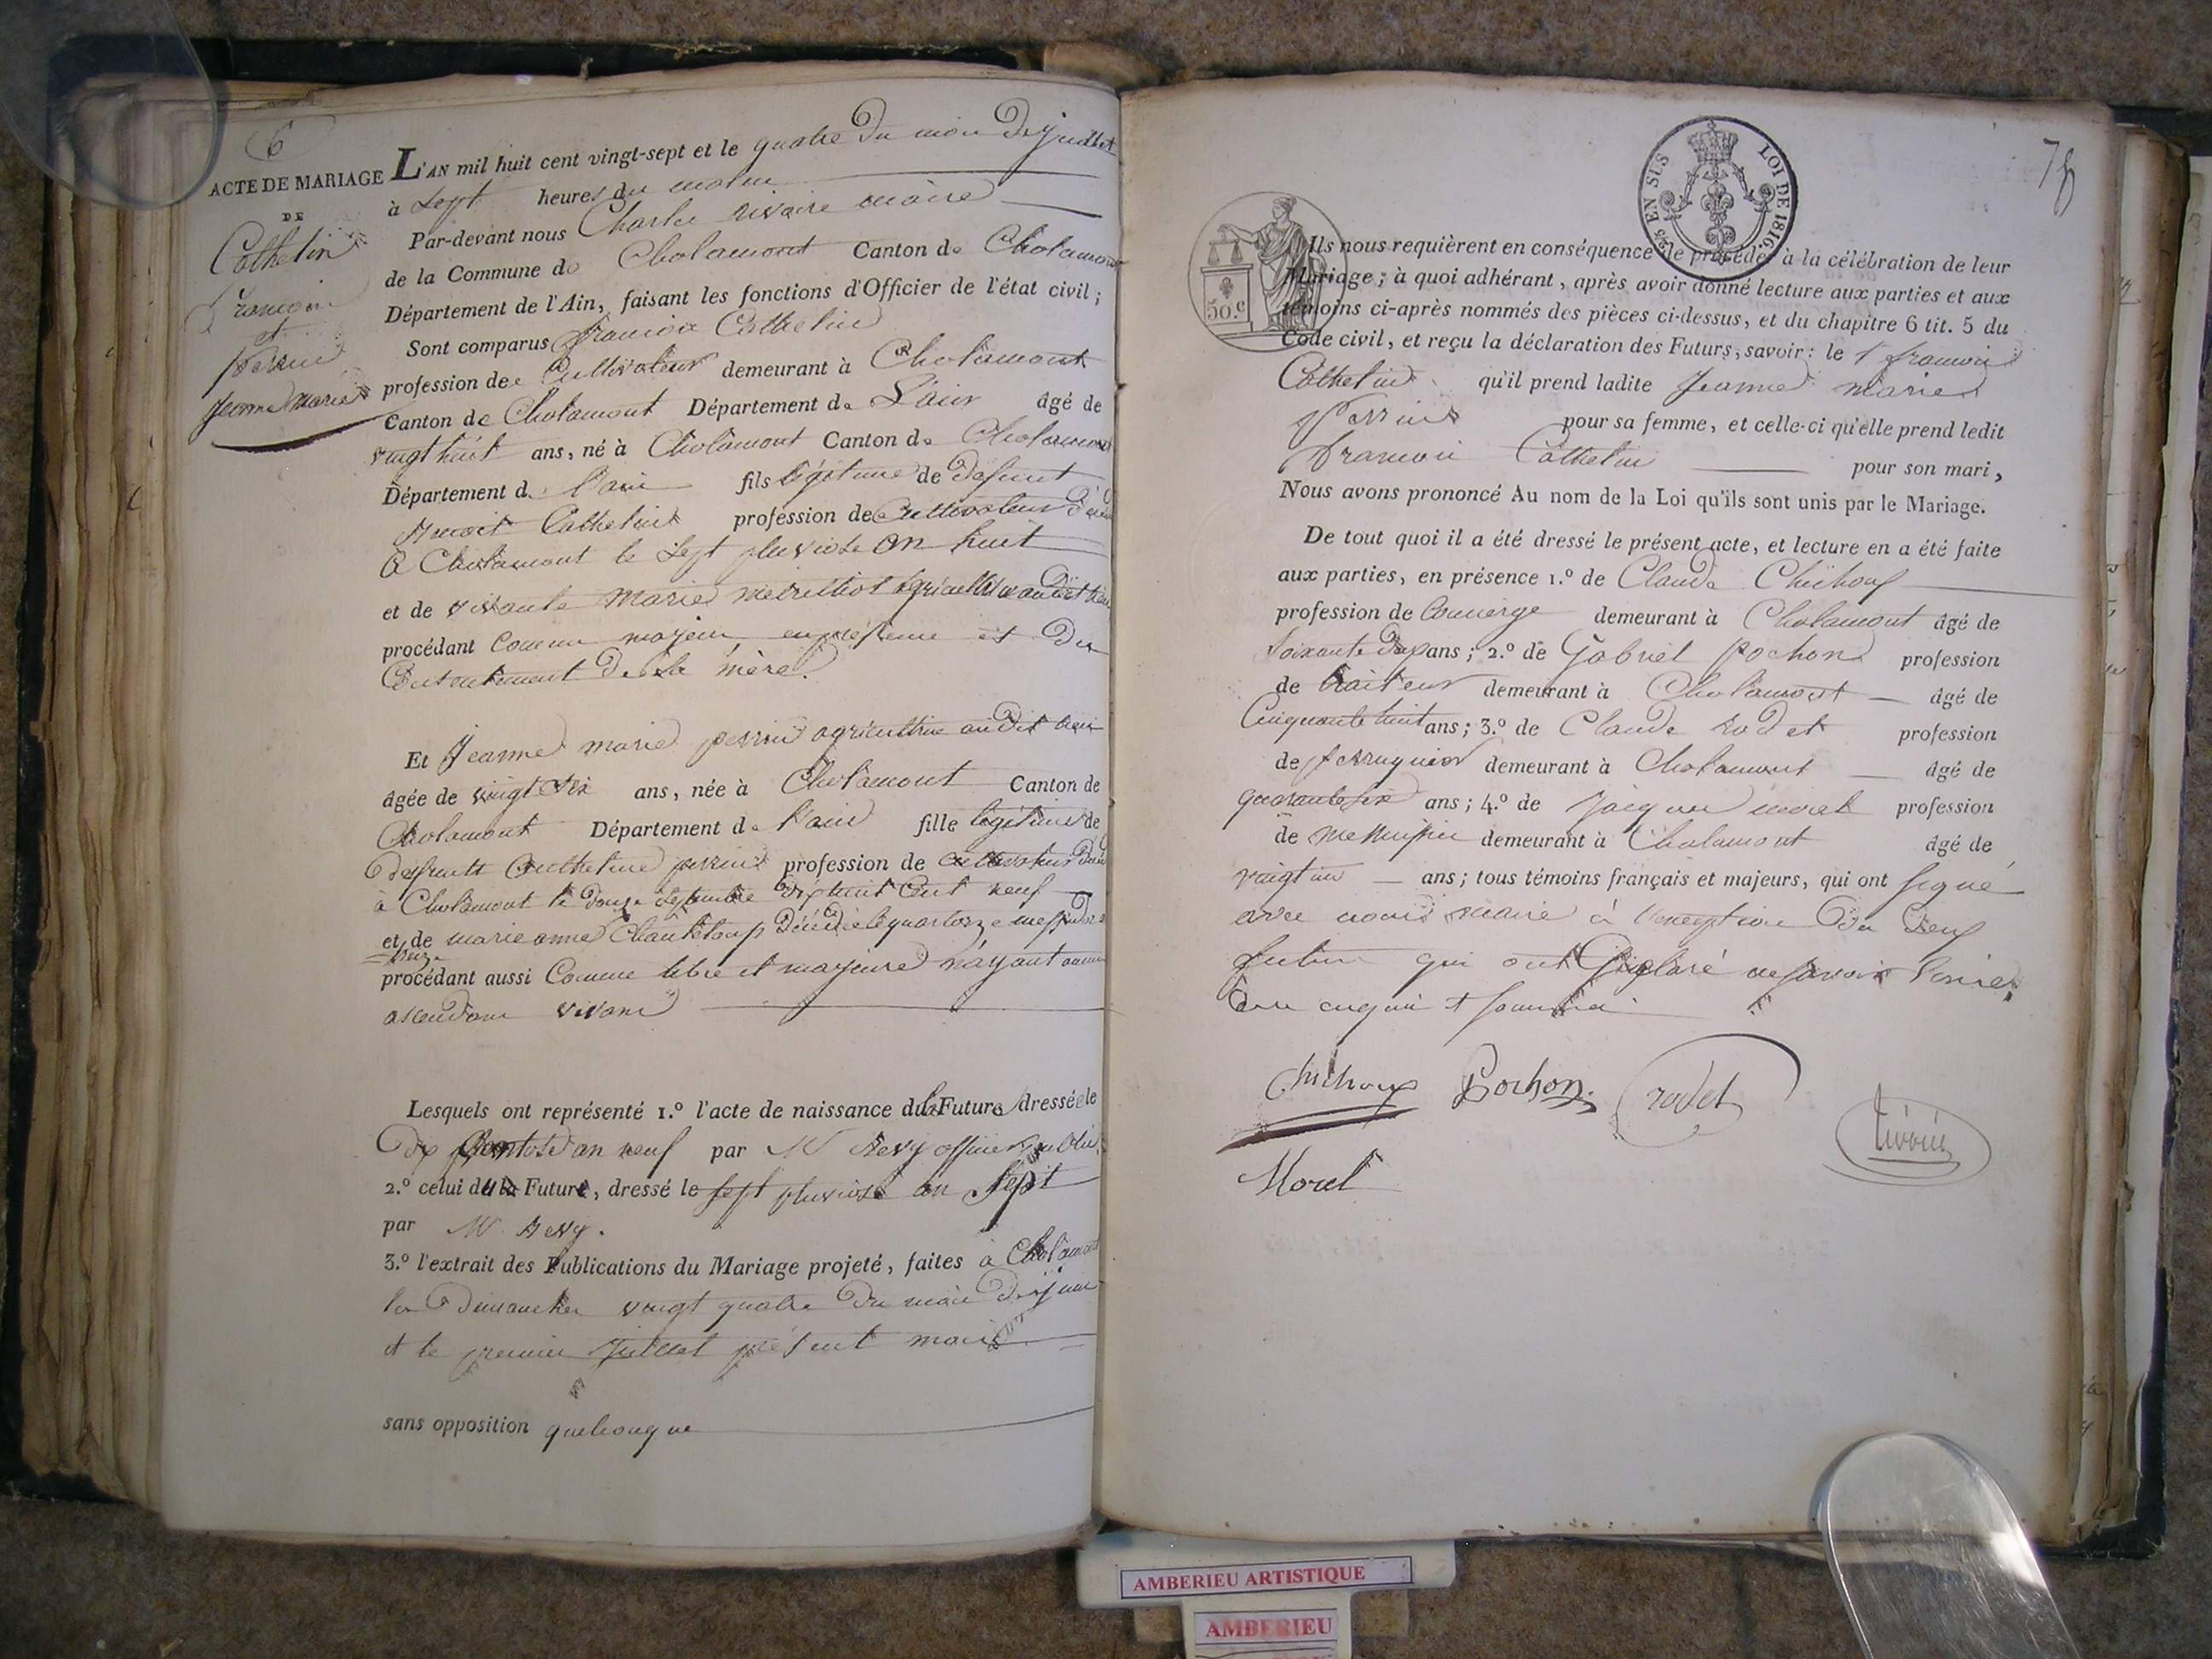 6
ACTE DE MARIAGE
DE
Cathelin
François
et
Perrin
Jeanne Marie
L'AN mil huit cent vingt-sept et le quatre du mois de juillet
à sept heures du matin
Par-devant nous Charles rivoire maire
de la Commune de Chalamont Canton de Chalamont
Département de l'Ain, faisant les fonctions d'Officier de l'état civil ;
Sont comparus françois Cathelin
profession de Cultivateur demeurant à Chalamont
Canton de Chalamont Département de L'ain âgé de
vingt huit ans, né à Chalamont Canton de Chalamont
Département de l'ain fils légitime de defunt
Cathelin profession de Cultivateur
à Chalamont le sept pluviose an huit
et de vivante marie
procédant comme majeur en présence et du
Consentement de sa mère.
Et Jeanne marie perrin agricultrice audit lieu
âgée de vingt six ans, née à Chalamont Canton de
Chalamont Département de l'ain fille légitime de
perrin profession de cultivateur
à Chalamont le douze septembre dix huit cent neuf
et de marie anne Chanteloup décédée le quatorze messidor
procédant aussi Comme libre et majeure n'ayant aucun
ascendant vivant
Lesquels ont représenté 1.º l'acte de naissance du la Future dressé le
Dix an neuf par Mr officier public
2.º celui du Future, dressé le sept pluviose an sept
par Mr
3.º l'extrait des Publications du Mariage projeté, faites à Chalamont
les Dimanches vingt quatre du mois de juin
et le premier Juillet présent mois
sans opposition quelconque
78
EN SUS LOI DE 1816. 25
50.c
Ils nous requièrent en conséquence de procéder à la célébration de leur
Mariage ; à quoi adhérant, après avoir donné lecture aux parties et aux
témoins ci-après nommés des pièces ci-dessus, et du chapitre 6 tit. 5 du
Code civil, et reçu la déclaration des Futurs, savoir : le françois
Cathelin qu'il prend ladite Jeanne marie
Perrin pour sa femme, et celle-ci qu'elle prend ledit
françois Cathelin pour son mari,
Nous avons prononcé Au nom de la Loi qu'ils sont unis par le Mariage.
De tout quoi il a été dressé le présent acte, et lecture en a été faite
aux parties, en présence 1.º de Claude Chichoux
profession de Concierge demeurant à Chalamont âgé de
soixante ans ; 2.º de Gabriel Pochon profession
de traiteur demeurant à Chalamont âgé de
Cinquante huit ans ; 3.º de Claude rodet profession
de perruquier demeurant à Chalamont âgé de
quarante six ans ; 4.º de Jacques morel profession
de menuisier demeurant à Chalamont âgé de
vingt un ans ; tous témoins français et majeurs, qui ont signé
avec nous maire à l'exception des deux
futurs qui ont déclaré ne savoir
de ce enquis et sommés
Chichoux Pochon. rodet
rivoire
Morel
AMBERIEU ARTISTIQUE
AMBERIEU